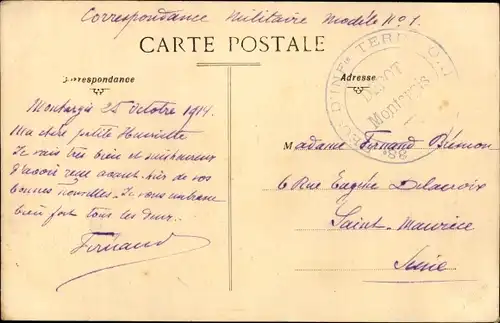 Correspondance Militaire Modèle No 1.
CARTE POSTALE
Correspondance
Adresse
REGt D'INFie TERRIT
DEPOT
Montargis
38
Montargis 25 Octobre 1914.
Ma chère petite Henriette
Je vais très bien et suis heureux
d'avoir reçu avant hier de vos
bonnes nouvelles. Je vous embrasse
bien fort tous les deux.
Fernand
Madame Fernand
6 Rue Eugène Delacroix
Saint-Maurice
Seine